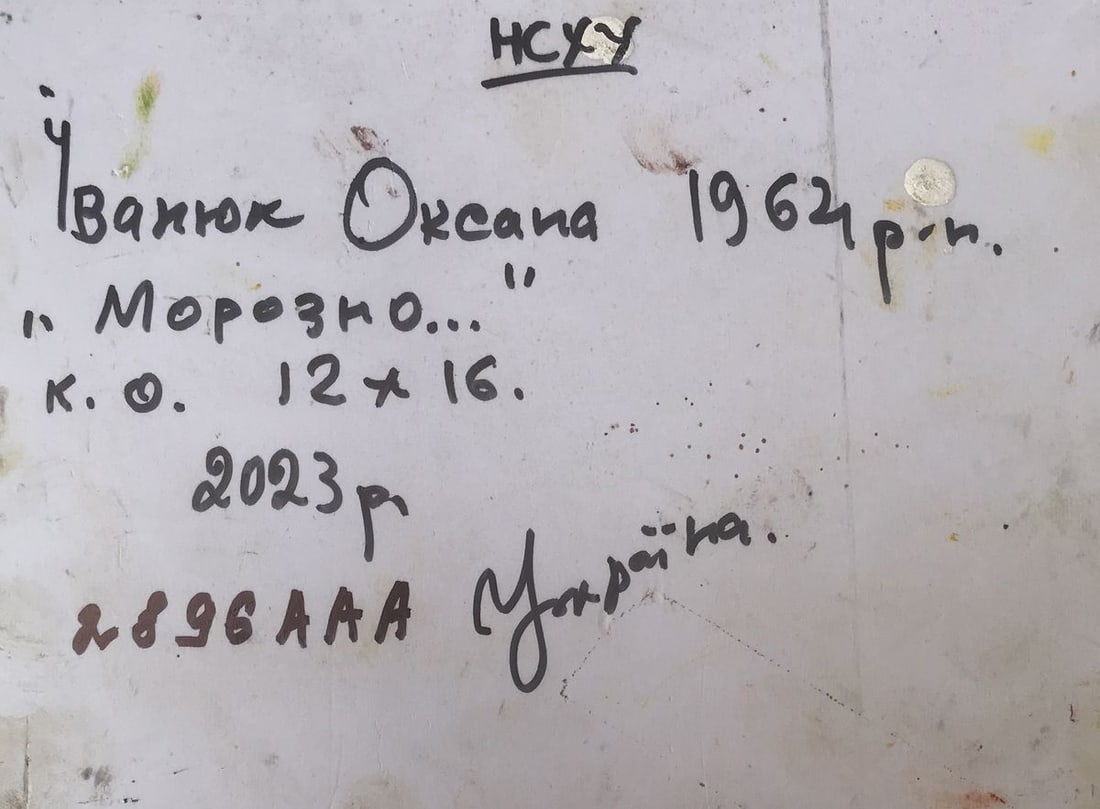 НСХУ
Іванюк Оксана 1964 р.н.
„ Морозно..."
к. о. 12 х 16.
2023 р
Україна.
2896ААА